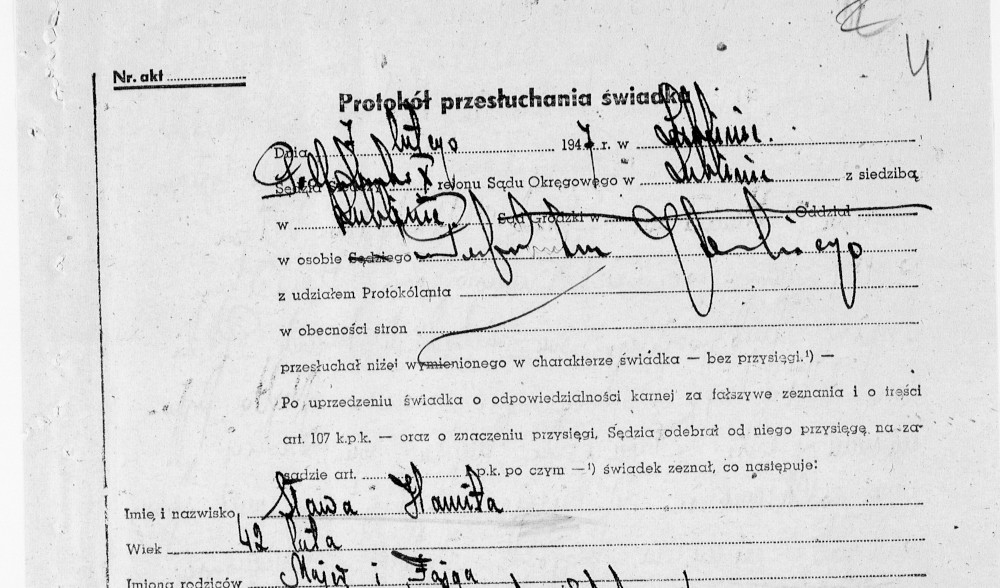 4
Nr. akt
Protokół przesłuchania świadka
Dnia 7 lutego 1947 r. w Lublinie.
Sędzia Śledczy X rejonu Sądu Okręgowego w Lublinie z siedzibą
w Lublinie, Sąd Grodzki w Oddział
w osobie Sędziego
z udziałem Protokólanta
w obecności stron
przesłuchał niżej wymienionego w charakterze świadka — bez przysięgi.¹) —
Po uprzedzeniu świadka o odpowiedzialności karnej za fałszywe zeznania i o treści
art. 107 k.p.k. — oraz o znaczeniu przysięgi, Sędzia odebrał od niego przysięgę na za-
sadzie art. k.p.k. po czym —¹) świadek zeznał, co następuje:
Imię i nazwisko Sława
Wiek 42 lata
Imiona rodziców i Fajga